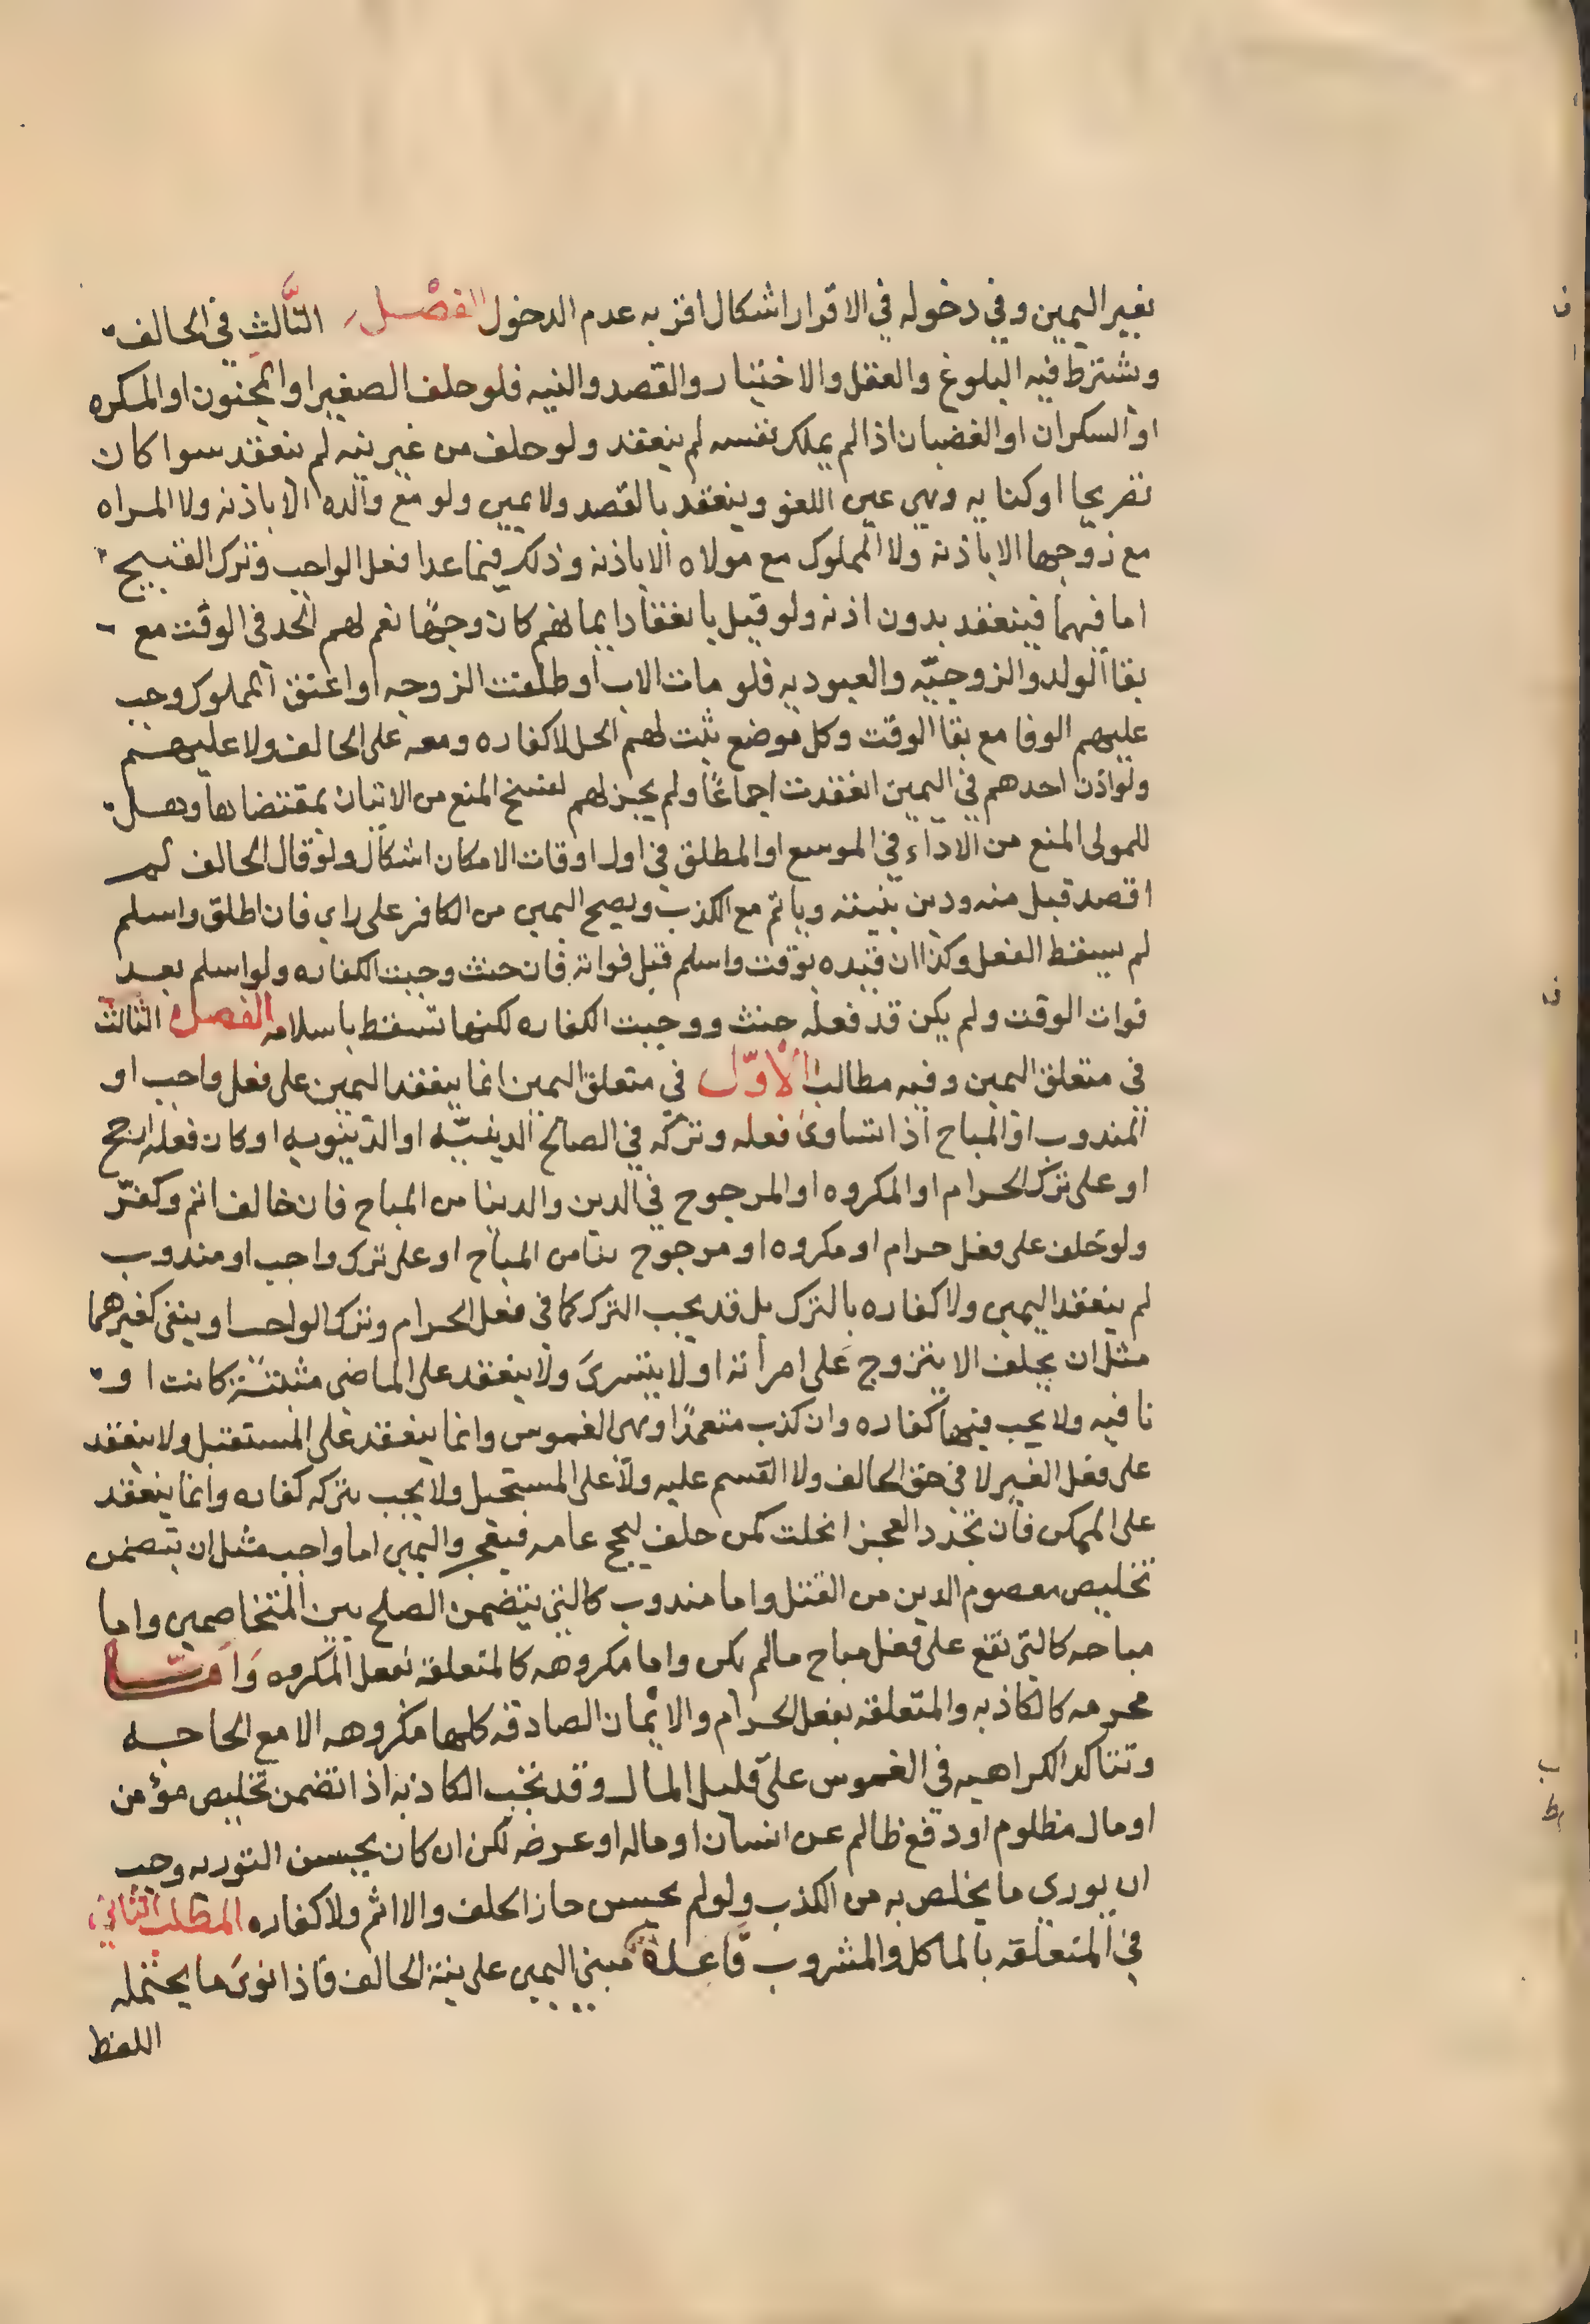 بغير اليمين وفي دخوله في الاقرار اشكال اقربه عدم الدخول الفصل الثالث في الحالف
ويشترط فيه البلوغ والعقل والاختيار والقصد والنيه فلو حلف الصغير او المجنون او المكره
او السكران او الغضبان اذا لم يملك نفسه لم ينعقد ولو حلف من غير نيه لم ينعقد سوا كان
تصريحا او كنايه وهي عين اللغو وينعقد بالقصد ولا يمين ولو مع والده الا باذنه ولا المراه
مع زوجها الا باذنه ولا المملوك مع مولاه الا باذنه وذلك فيما عدا فعل الواجب وترك القبيح
اما فيهما فينعقد بدون اذنه ولو قيل بانعقاد ايمانهم كان وجها نعم لهم الحد في الوقت مع
بقا الولد والزوجيّه والعبوديه فلو مات الاب او طلقت الزوجه او اعتق المملوك وجب
عليهم الوفا مع بقا الوقت وكل موضع يثبت لهم الحل لا كفاره ومعه على الحالف ولا عليهم
ولو اذن احدهم في اليمين انعقدت اجماعًا ولم يجز لهم لفسخ المنع من الاتيان بمقتضاها وهل
للمولى المنع من الاداء في الموسع او المطلق في اول اوقات الامكان اشكال ولو قال الحالف لم
اقصد قبل منه ودين بنيته وياثم مع الكذب ويصح اليمين من الكافر على راي فان اطلق واسلم
لم يسقط الفعل وكذا ان قيده بوقت واسلم قبل فواته فان حنث وجبت الكفاره ولو اسلم بعد
فوات الوقت ولم يكن قد فعله حنث ووجبت الكفاره لكنها تسقط باسلامه الفصل الثالث
في متعلق اليمين وفيه مطالب الأوّل في متعلق اليمين انما ينعقد اليمين على فعل واجب او
المندوب او المباح اذا تساوى فعله وتركه في الصالح الدينيّه او الدينويه او كان فعله ارجح
او على ترك الحرام او المكروه او المرجوح في الدين والدينا من المباح فان خالف اثم وكفّر
ولو حلف على فعل حرام او مكروه او مرجوح من المباح او على ترك واجب او مندوب
لم ينعقد اليمين ولا كفاره بالترك بل قد يجب الترك كما في فعل الحرام وترك الواجب او ينفى كغيرهما
مثل ان يحلف الا يتزوج على امرأته او لا يتسرى ولا ينعقد على الماضي مثبتة كانت او
نافيه ولا يجب فيها كفاره وان كذب متعمدًا وهي الغموس وانما ينعقد على المستقبل ولا ينعقد
على فعل الغير لا في حق الحالف ولا القسم عليه ولا على المستحيل ولا يجب بتركه كفاره وانما ينعقد
على الممكن فان تجدد العجز انحلت كمن حلف ليحج عامه فيعجز واليمين اما واجب مثل ان يتضمن
تخليص معصوم الدين من القتل واما مندوب كالتي يتضمن الصلح بين المتخاصمين واما
مباحه كالتي تقع على فعل مباح ما لم يكن واما مكروهه كالمتعلقه بفعل المكروه وَامّا
محرمه كالكاذبه والمتعلقه بفعل الحرام والايمان الصادقه كلها مكروهه الا مع الحاجه
وتتاكد الكراهيه في الغموس على قليل المال وقد تجب الكاذبه اذا تضمن تخليص مؤمن
او مال مظلوم او دفع ظالم عن انسان او ماله او عرضه لكن ان كان يحسن التوريه وجب
ان يوري ما يخلص به من الكذب ولو لم يحسن جاز الحلف والا اثم ولا كفاره المطلب الثاني
في المتعلقه بالماكل والمشروب قاعدة مبني اليمين على نية الحالف فاذا نوى ما يحتمله
اللفظ